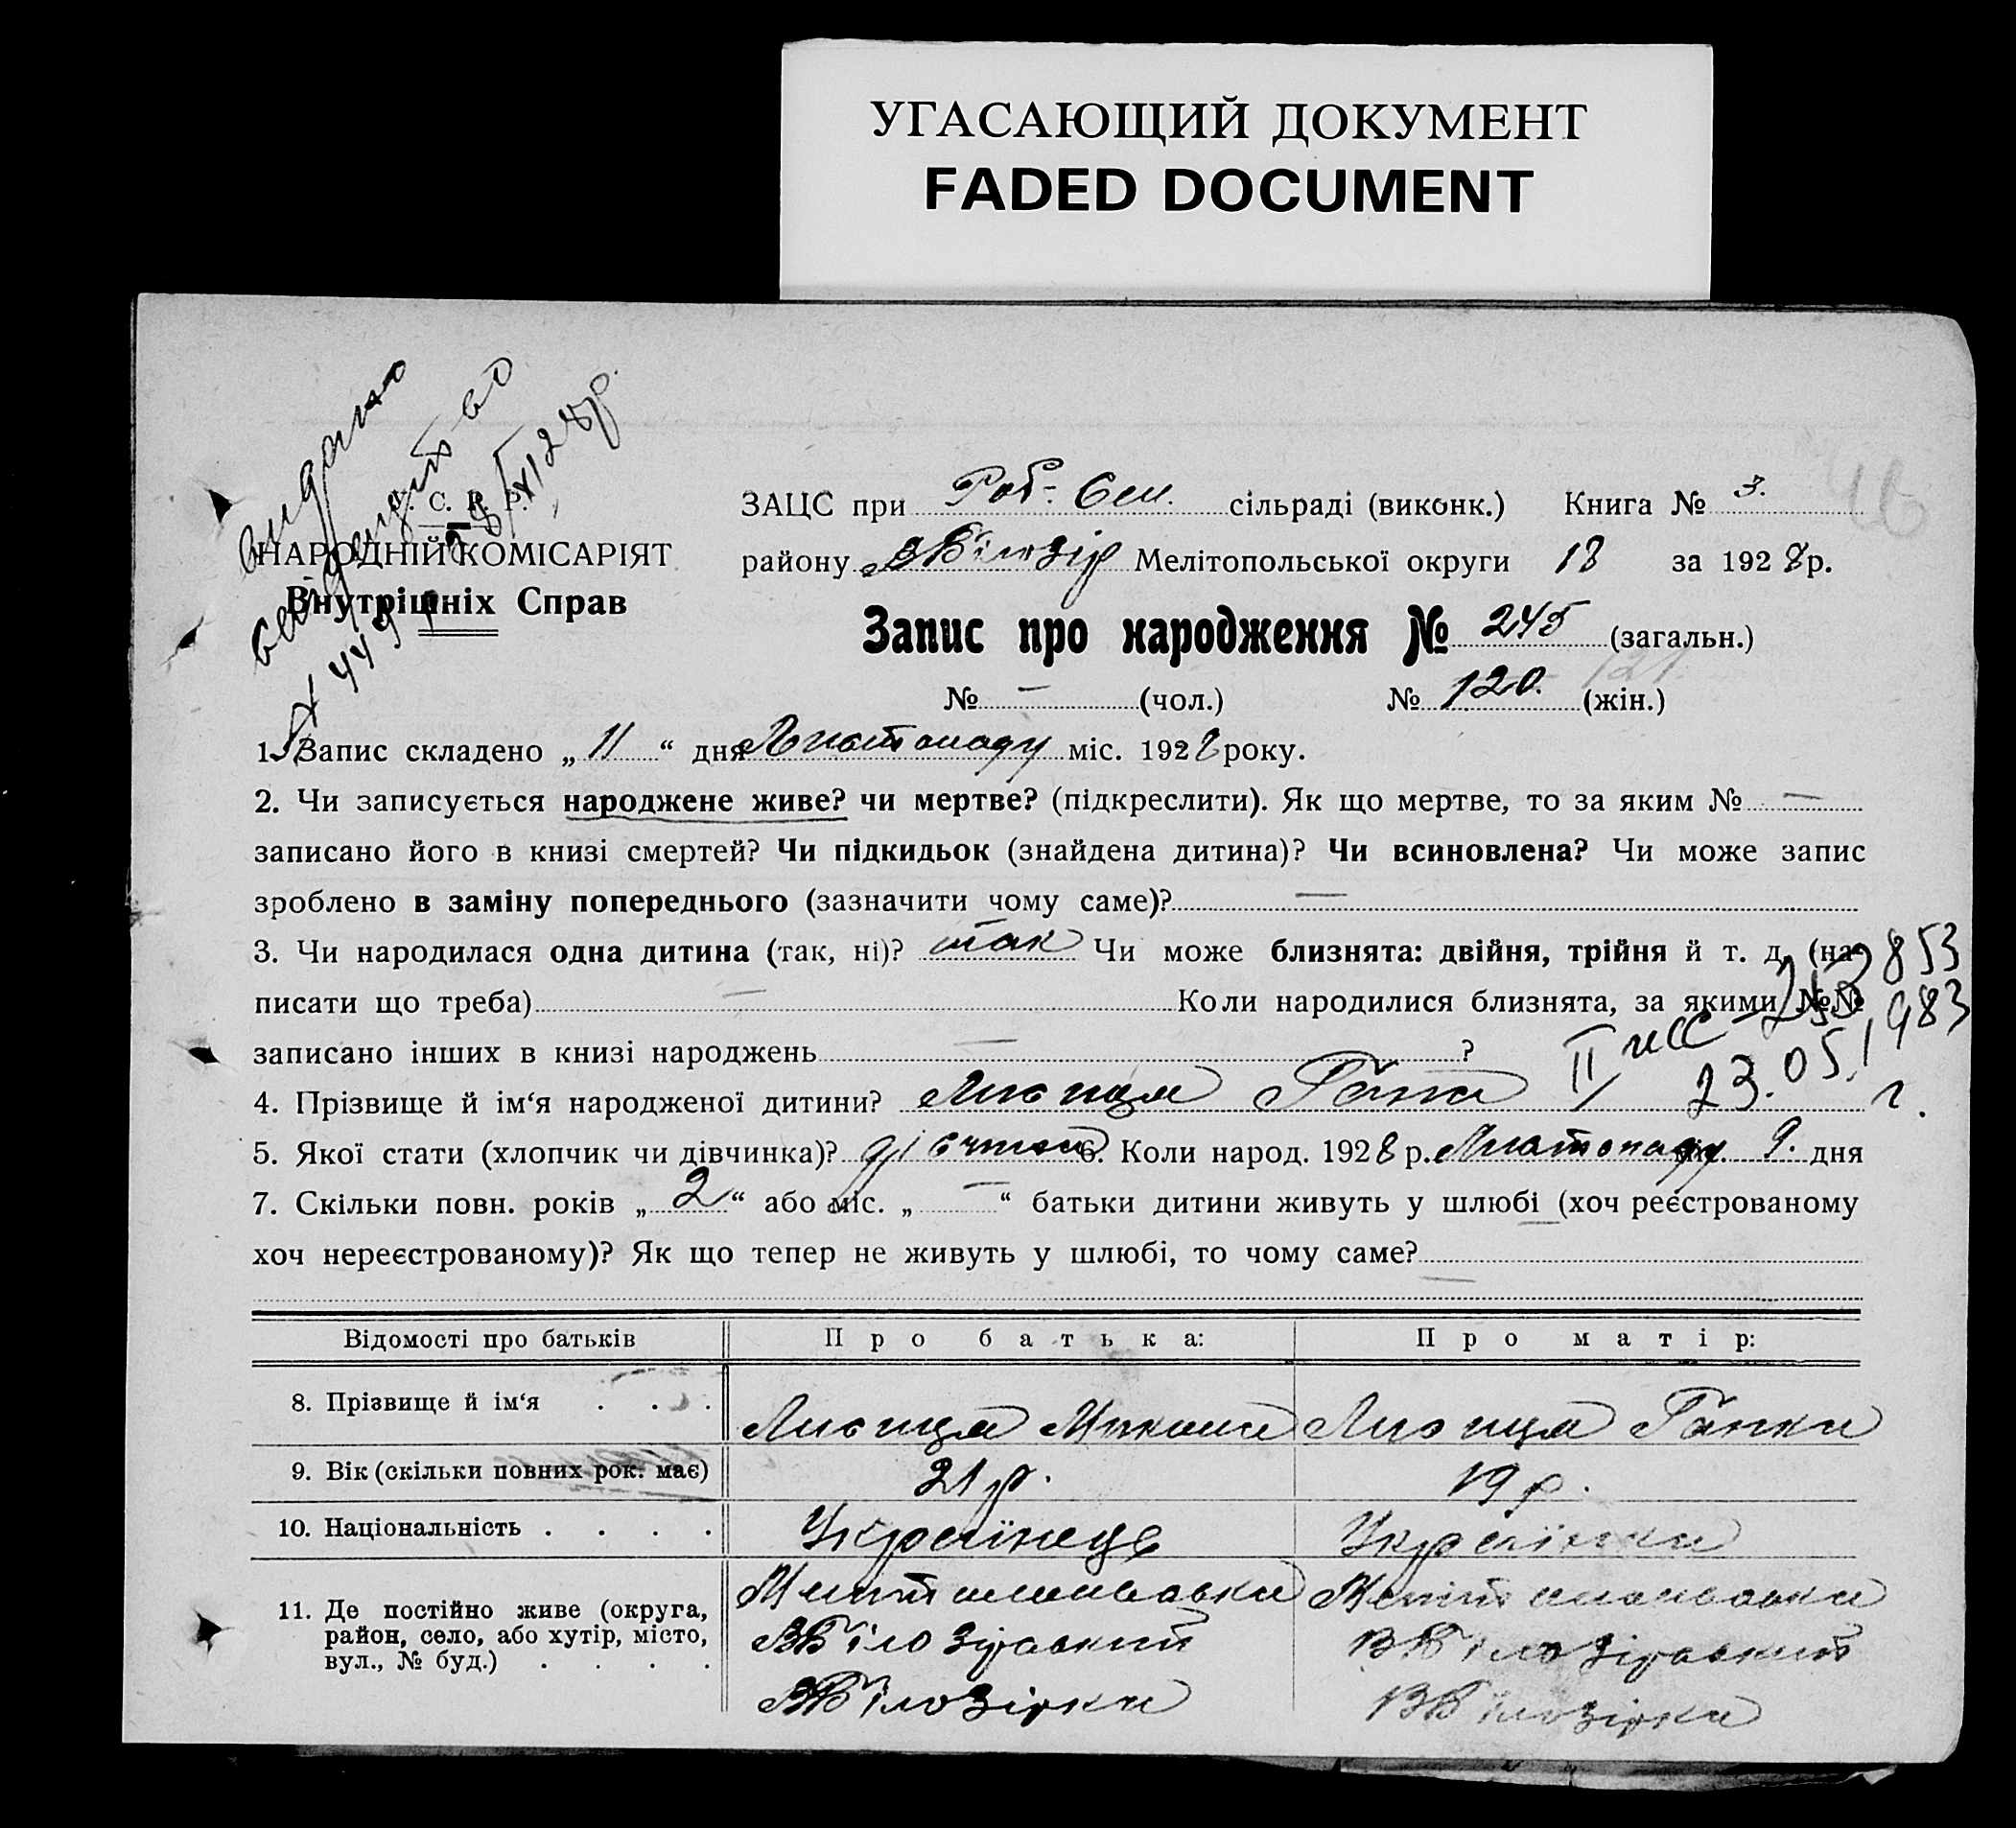 УГАСАЮЩИЙ ДОКУМЕНТ
FADED DOCUMENT
видано
свідоцтво
У. С. Р. Р.
НАРОДНІЙ КОМІСАРІЯТ
Внутрішніх Справ
ЗАЦС при Роб-Сел. сільраді (виконк.) Книга № 3.
району ВБілозір Мелітопольської округи за 1928 р.
Запис про народження № 245 (загальн.)
№ — (чол.) № 120. (жін.)
1. Запис складено „ 11 “ дня Листопаду міс. 1928 року.
2. Чи записується народжене живе? чи мертве? (підкреслити). Як що мертве, то за яким № —
записано його в книзі смертей? Чи підкидьок (знайдена дитина)? Чи всиновлена? Чи може запис
зроблено в заміну попереднього (зазначити чому саме)? —
3. Чи народилася одна дитина (так, ні)? так Чи може близнята: двійня, трійня й т. д. (на-
писати що треба) — Коли народилися близнята, за якими №№
записано інших в книзі народжень — ?
23.05.1983 г.
4. Прізвище й ім‘я народженої дитини? Лисиця Ганна
5. Якої стати (хлопчик чи дівчинка)? дівчинка 6. Коли народ. 1928 р. Листопаду міс. 9. дня
7. Скільки повн. років „ 2 “ або міс. „ — “ батьки дитини живуть у шлюбі (хоч реєстрованому
хоч нереєстрованому)? Як що тепер не живуть у шлюбі, то чому саме? —
Відомості про батьків Про батька: Про матір:
8. Прізвище й ім‘я . . . Лисиця Микола Лисиця Ганна
9. Вік (скільки повних рок. має) 21 р. 19 р.
10. Національність . . . . Українець Українка
11. Де постійно живе (округа,
район, село, або хутір, місто,
вул., № буд.) . . . .
Мелітопольська Мелітопольська
ВБілозірський ВБілозірський
ВБілозірка ВБілозірка